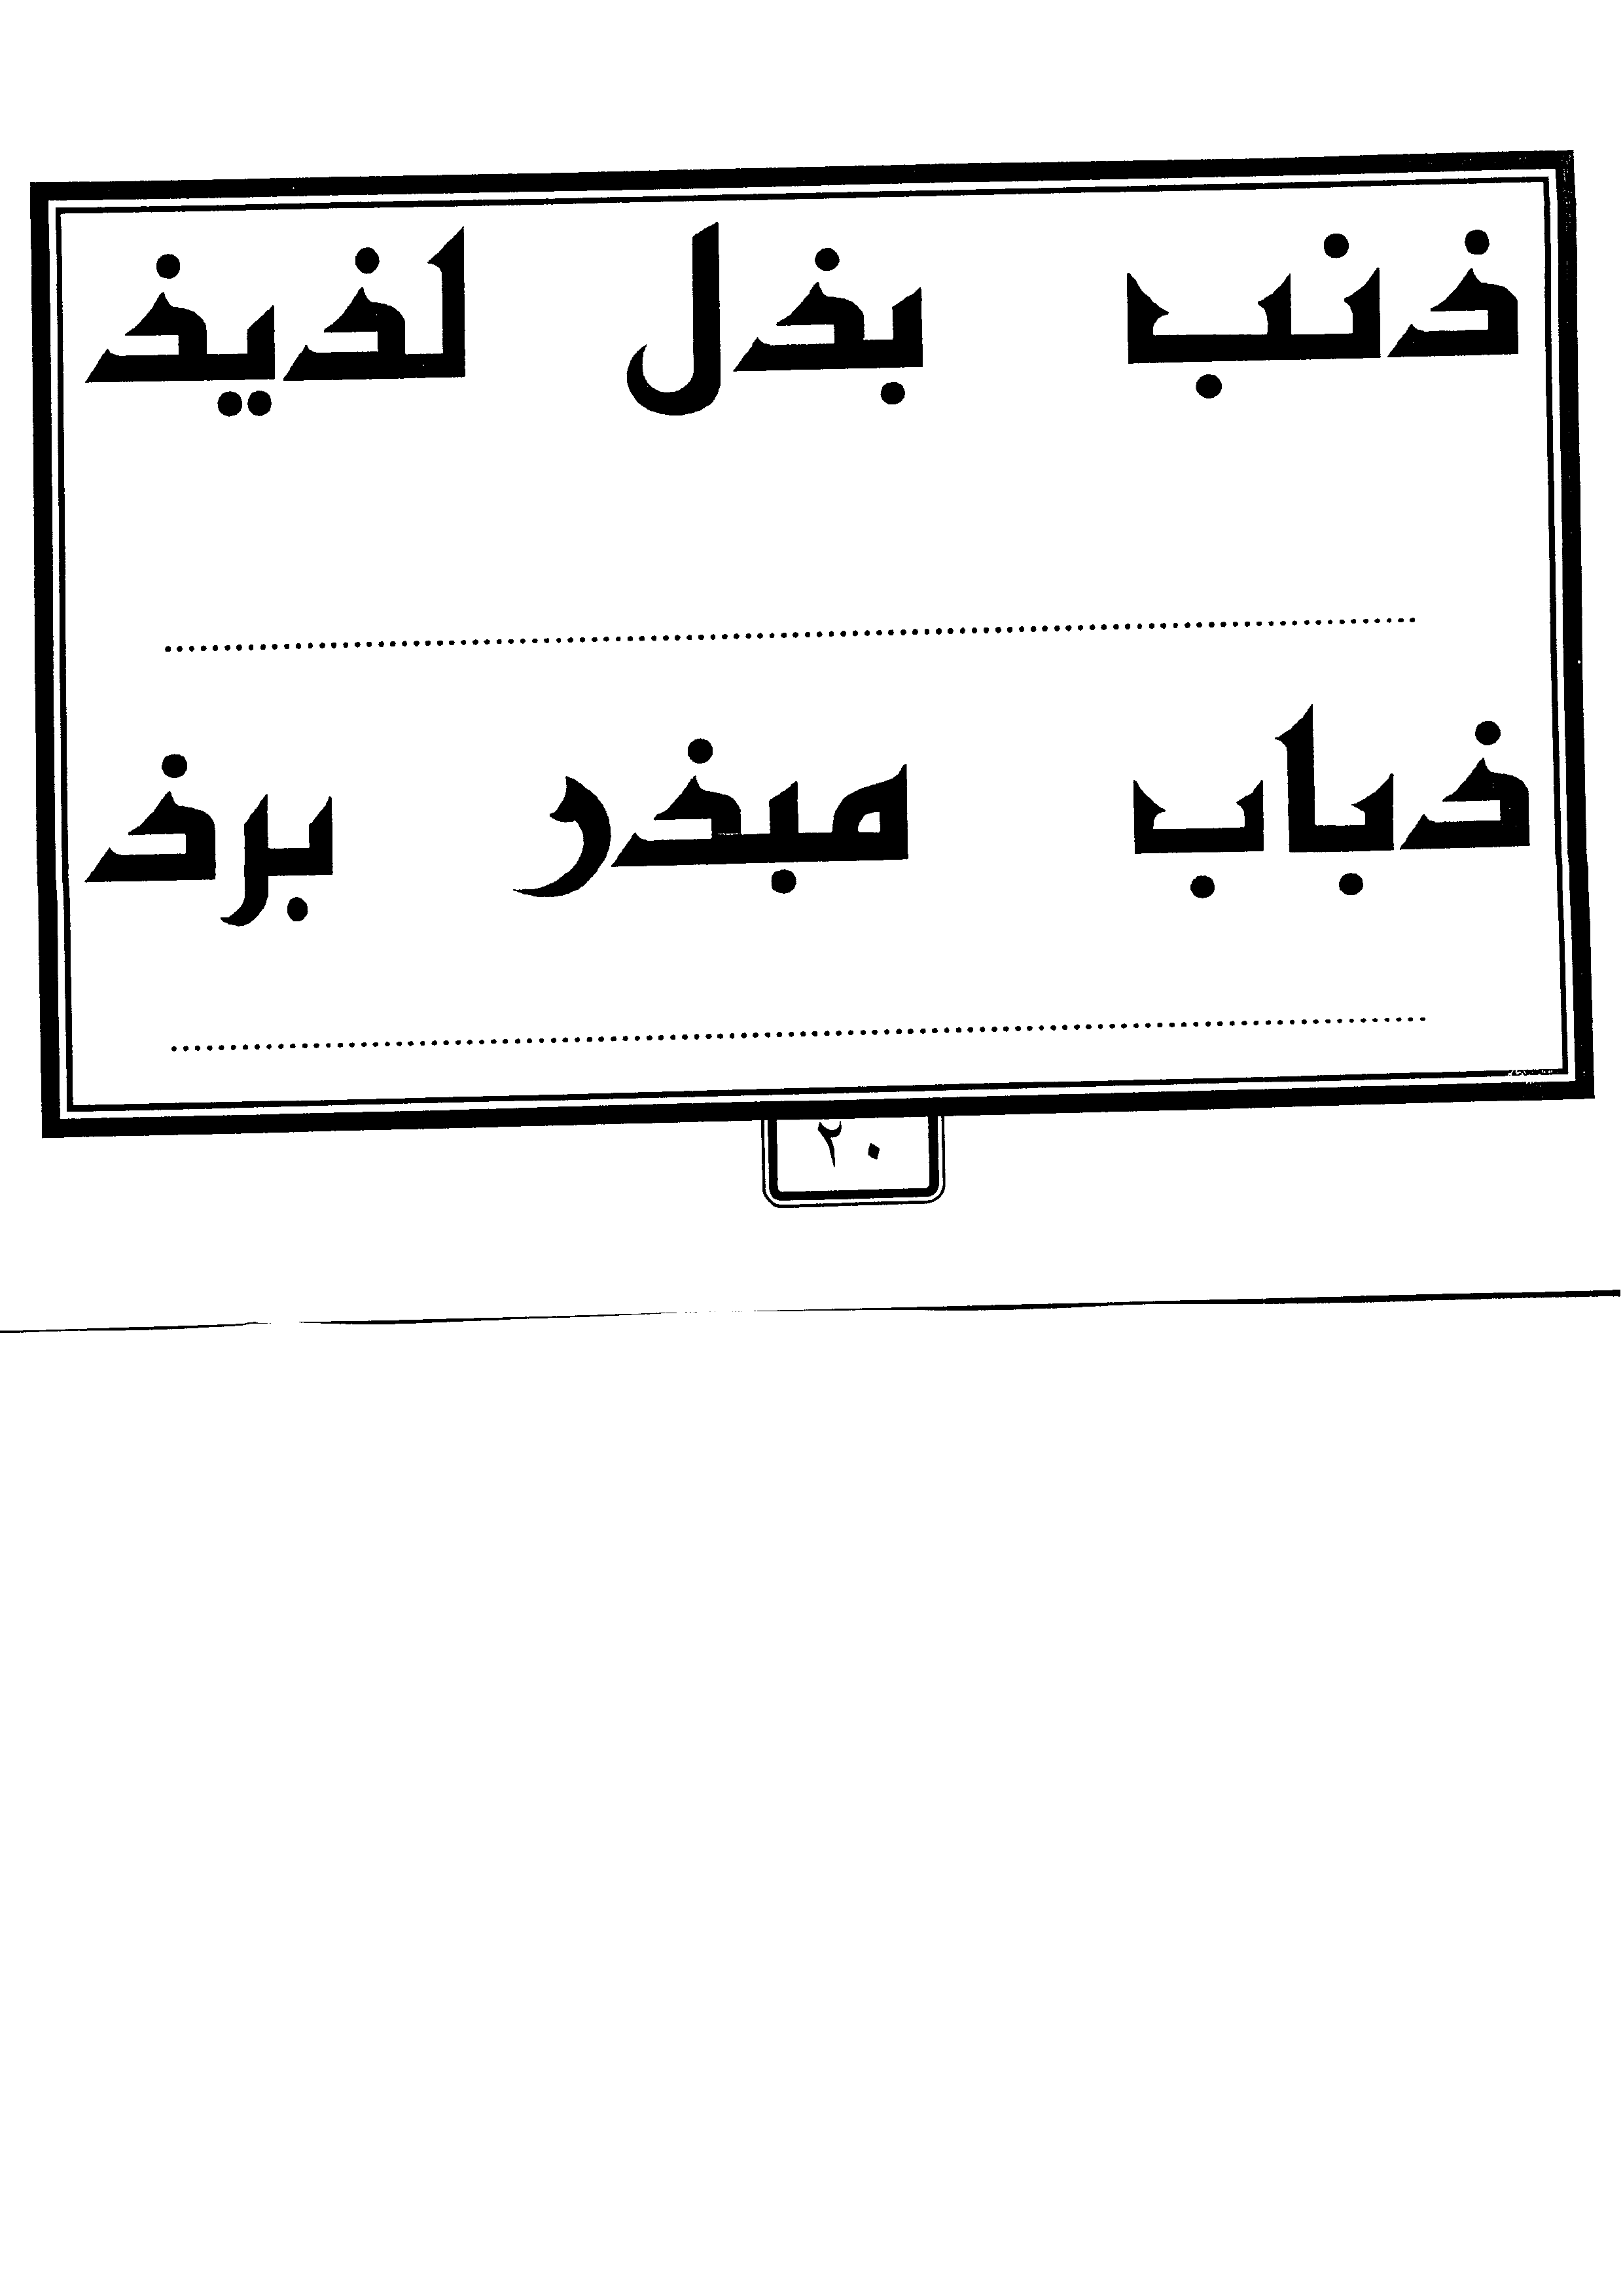 ذنب بذل لذيذ
ذباب مبذر برذ
٢٠